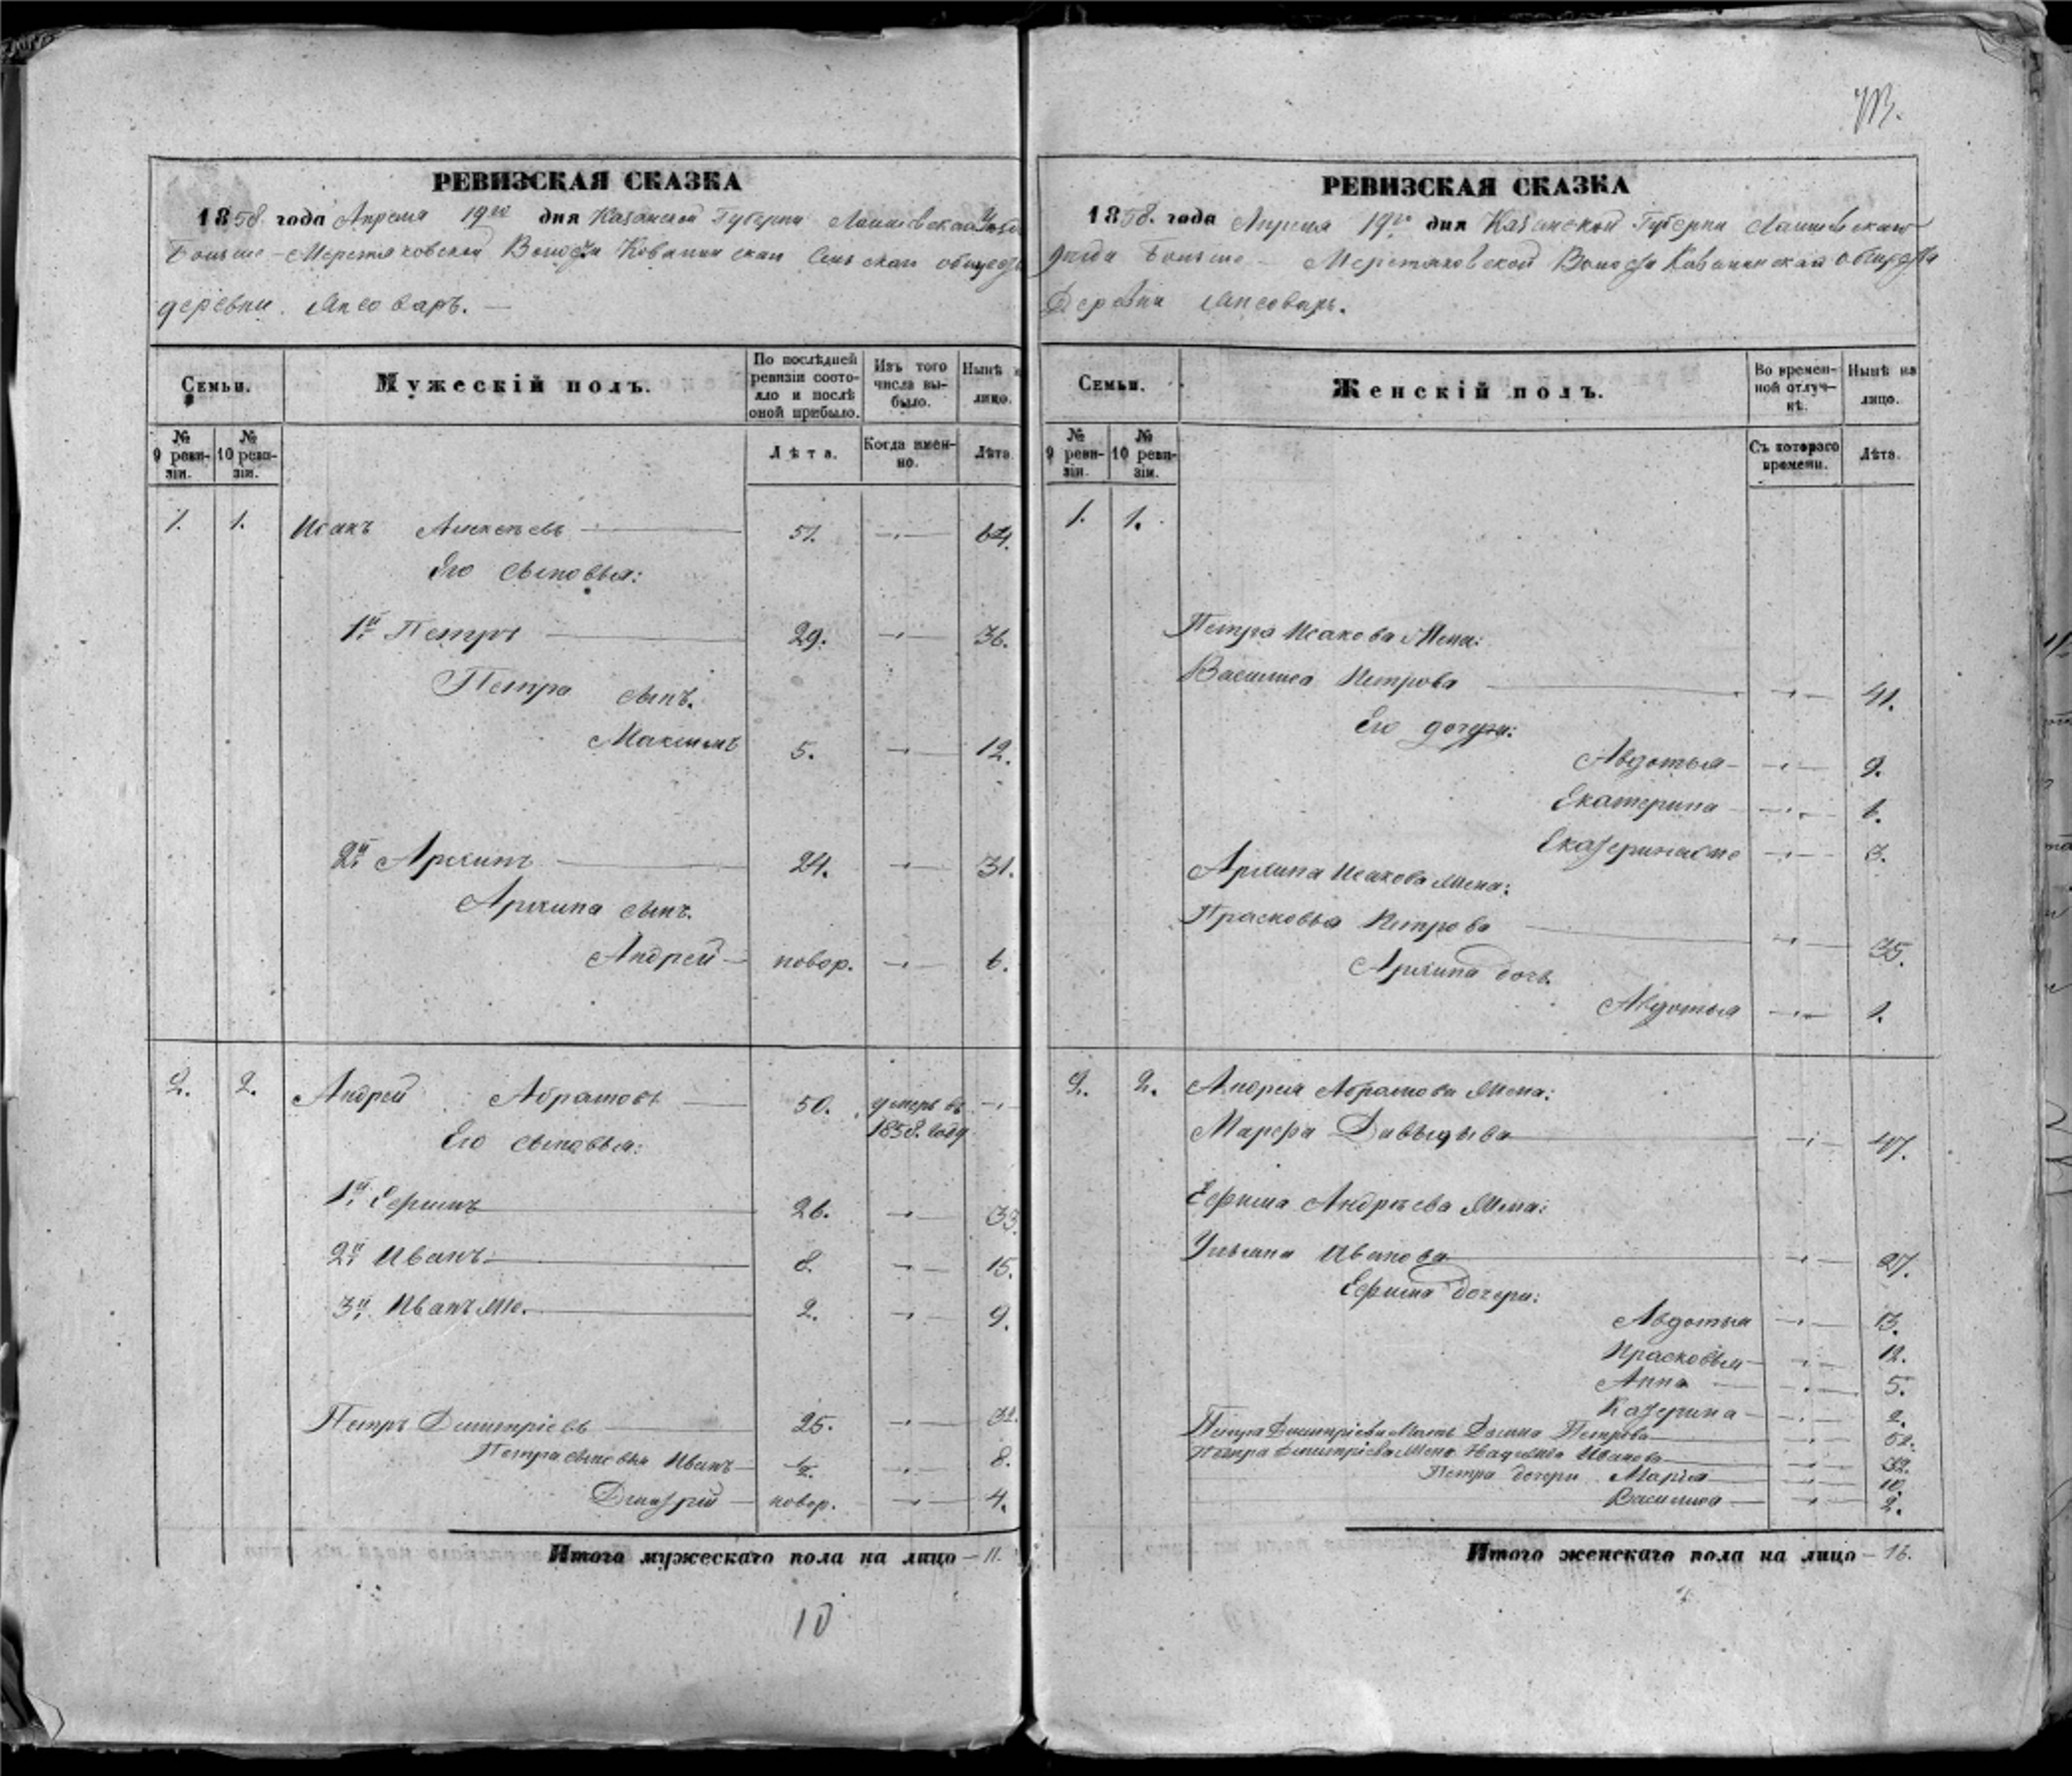 РЕВИЗСКАЯ СКАЗКА
1858. года Апреля 19го дня Казанской Губерніи Лаишевскаго
Больше-Меретяковской Волости
деревни
Семьи.
Мужескій полъ.
По послѣдней ревизіи состояло и послѣ оной прибыло.
Изъ того числа выбыло.
Нынѣ на лицо.
№ 9 ревизіи.
№ 10 ревизіи.
Лѣта.
Когда именно.
Лѣта.
1. 1. Исакъ Алексѣевъ 57. 64.
Его сыновья:
1й Петръ 29. 36.
Петра сынъ.
Максимъ 5. 12.
2й Архипъ 24. 31.
Архипа сынъ.
Андрей новор. 6.
2. 2. Андрей Абрамовъ 50. умеръ въ
1858. году
Его сыновья:
1й Ефимъ 26. 33.
2й Иванъ 8. 15.
3й Иванъ же. 2. 9.
Петръ Димитріевъ 25. 32.
Петра сыновья Иванъ 1/2. 8.
Дмитрій новор. 4.
Итого мужескаго пола на лицо 11.
10
РЕВИЗСКАЯ СКАЗКА
1858. года Апреля 19го дня Казанской Губерніи Лаишевскаго
Уезда Больше-Меретяковской Волости
Деревни
Семьи.
Женскій полъ.
Во временной отлучкѣ.
Нынѣ на лицо.
№ 9 ревизіи.
№ 10 ревизіи.
Съ котораго времени.
Лѣта.
1. 1.
Петра Исакова Жена:
Василиса Петрова 41.
Его дочери:
Авдотья 9.
Екатерина 6.
Екатерина же 3.
Архипа Исакова жена:
Прасковья Петрова 35.
Архипа дочь.
Авдотья 1.
2. 2. Андрея Абрамова Жена:
Марфа Давыдова 47.
Ефима Андрѣева Жена:
Ульяна Иванова 27.
Ефима дочери:
Авдотья 13.
Прасковья 12.
Анна 5.
Катерина 2.
Петра Димитріева Мать Домна Петрова 52.
Петра Димитріева Жена Иванова 32.
Петра дочери Марія 10.
Василиса 2.
Итого женскаго пола на лицо 16.